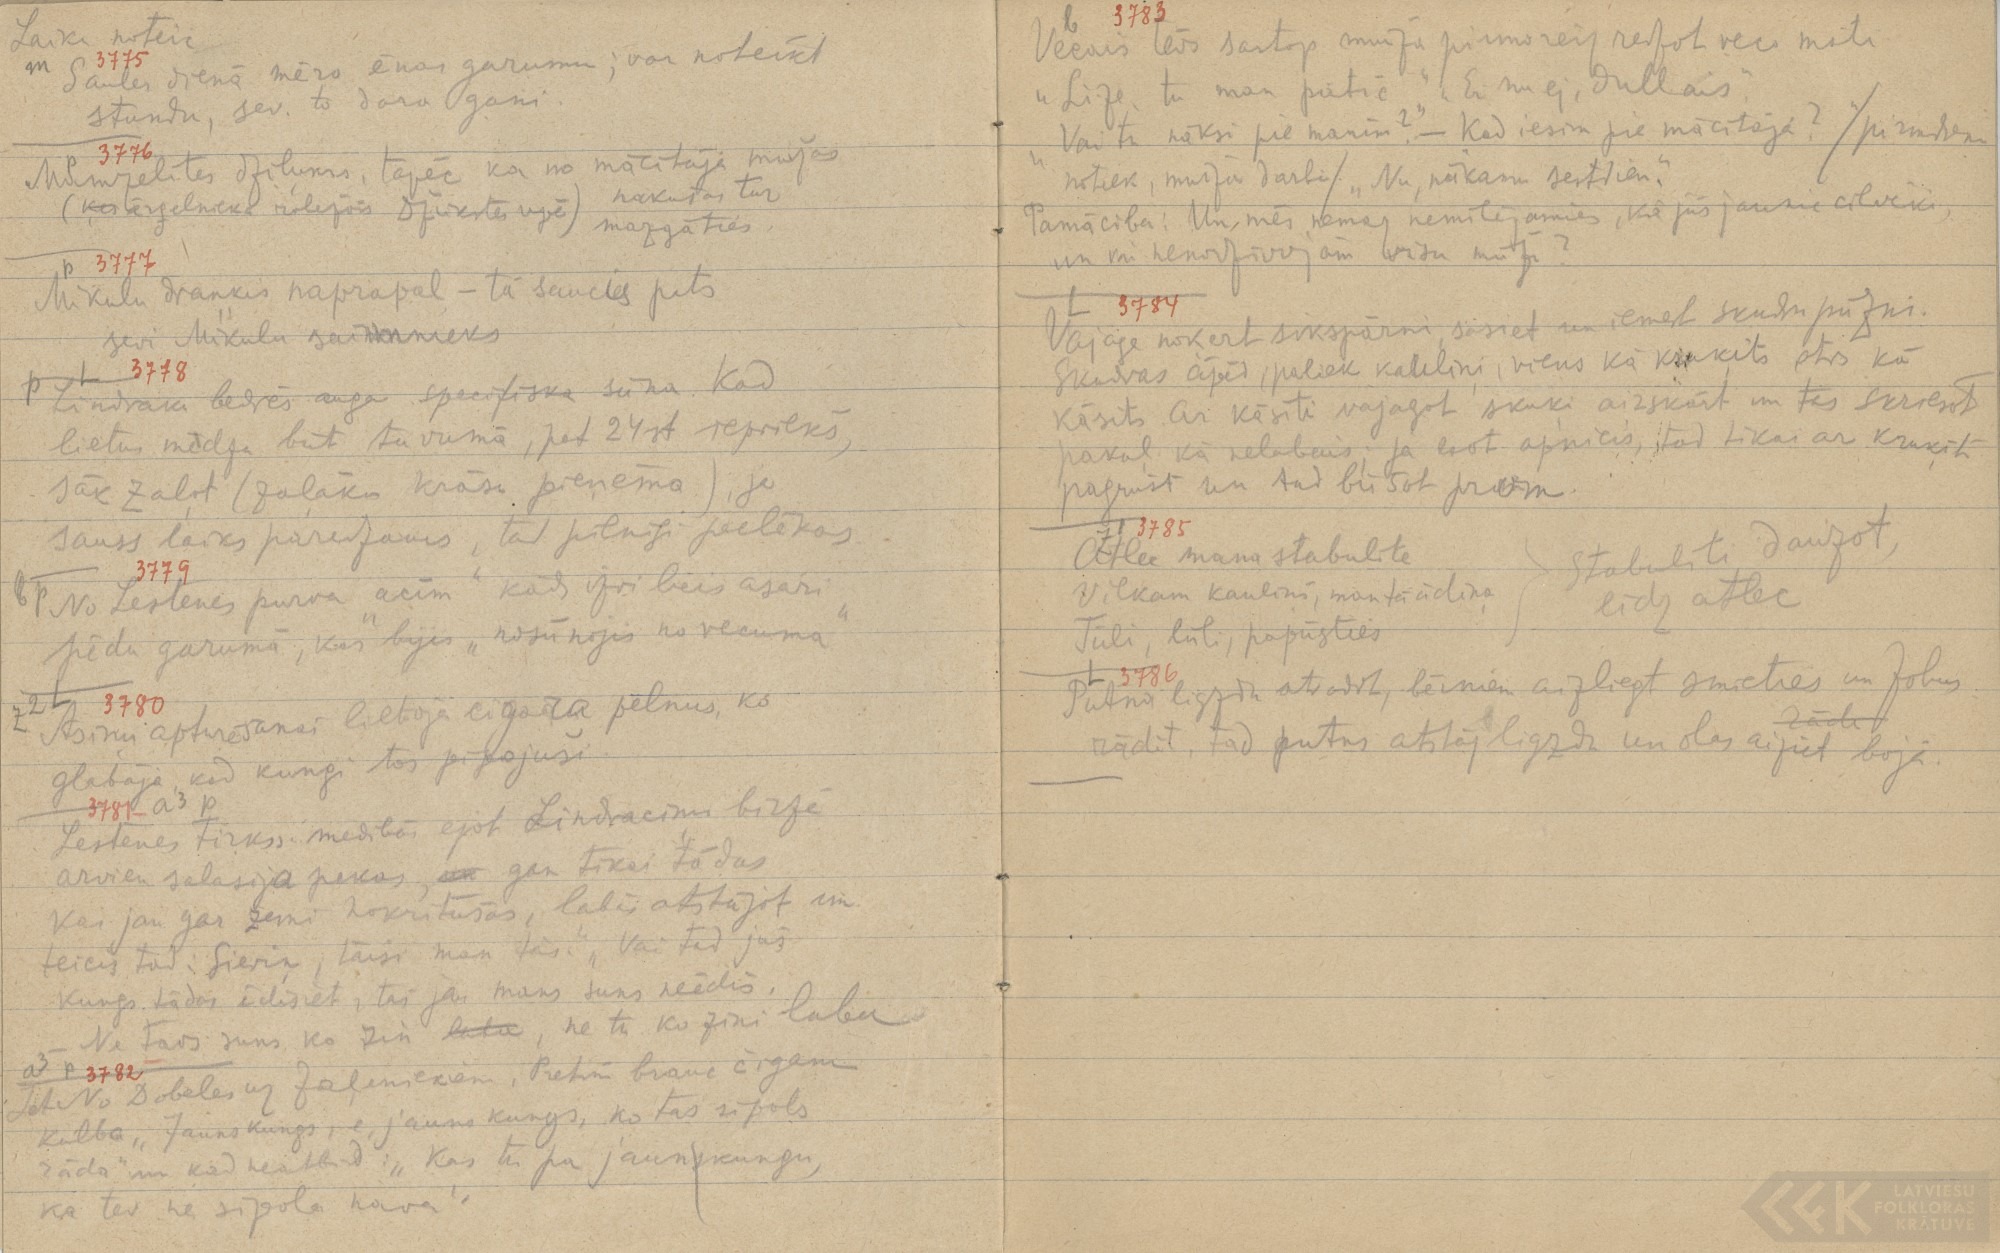 Laika noteic
m 3775
Saules dienā mēro ēnas garumu; var noteikt
stundu, sev. to dara gani.
p 3776
Mamzelītes dziļums, tāpēc ka no mācītāja muižas
(ērģelnieka Džūkstes upē) nākušas tur
mazgāties.
p 3777
Mikulu drankis naprapal – tā saucis pats
sevi Mikulu saimnieks
p L 3778
Lindraku bedrēs auga specifiska sūna. Kad
lietus mēdza būt tuvumā, pat 24 st iepriekš,
sāk zaļot (zaļāku krāsu pieņēma), ja
sauss laiks paredzams, tad pilnīgi pelēkas.
b p 3779
No Lestenes purva "acīm" kāds asari
pēdu garumā, kas bijis „nosūnojis no vecuma"
z2 L 3780
Asiņu apturēšanai lietoja cigara pelnus, ko
glabāja, kad kungi tos pīpojuši.
3781 a3 p
Lestenes Firkss medībās ejot Lindraciņu birzē
arvien salasīja pekas, gan tikai tādas
kai jau gar zemi nokritušas, labās atstājot un
teicis tad: Sieviņ, taisi man tās." „Vai tad jūs
kungs tādas ēdīsiet, tās jau mans suns neēdīs.
Ne tavs suns ko zin, ne tu ko zini labu
a3 p 3782
No Dobeles uz Zaļeniekiem. Pretim brauc čigānu
kulba „Jaunskungs, e, jaunskungs, ko tas sīpols
rāda" un kad neatbild: „Kas tu pa jaunskungu,
ka tev ne sīpola nava".
b 3783
Vecais tēvs sastop muižā pirmoreiz redzot veco māti
„Līze, tu man patīc" „Ej nu ej, dullais".
„Vai tu nāksi pie manim?" – Kad iesim pie mācītāja? /pirmdien
notiek, muižā darbi/ „Nu, nākamu sestdien."
Pamācība: Un mēs nemaz nemīlējāmies, kā jūs jaunie cilvēki,
un vai nenodzīvojām visu mūžu?
L 3784
Vajage noķert sikspārni, sasiet un iemest skudru pūznī.
Skudras apēd, paliek kauliņi, viens kā kruķīts otrs kā
kāsīts. Ar kāsīti vajagot skuķi aizskārt un tas skriešot
pakaļ kā nelabais; ja esot apnicis, tad tikai ar kruķīti
pagrūst un tad būšot prom.
3785
Atlec mana stabulīte
Vilkam kauliņi, man tā ādiņa
Tūli, lūli, papūsties
Stabulīti dauzot,
līdz atlec
L 3786
Putna ligzdu atrodot, bērniem aizliegt smieties un zobus
rādīt, tad putns atstāj ligzdu un olas aiziet bojā.
LATVIEŠU
FOLKLORAS
KRĀTUVE